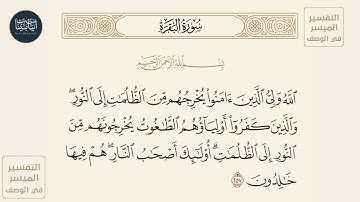 سُورَةُ البَقَرَةِ
التفسير
الميسر
في الوصف
بِسْمِ اللَّهِ الرَّحْمَٰنِ الرَّحِيمِ
ٱللَّهُ وَلِيُّ ٱلَّذِينَ ءَامَنُوا۟ يُخْرِجُهُم مِّنَ ٱلظُّلُمَٰتِ إِلَى ٱلنُّورِۖ
وَٱلَّذِينَ كَفَرُوٓا۟ أَوْلِيَآؤُهُمُ ٱلطَّٰغُوتُ يُخْرِجُونَهُم مِّنَ
ٱلنُّورِ إِلَى ٱلظُّلُمَٰتِۗ أُو۟لَٰٓئِكَ أَصْحَٰبُ ٱلنَّارِۖ هُمْ فِيهَا
خَٰلِدُونَ ٢٥٧
التفسير
الميسر
في الوصف